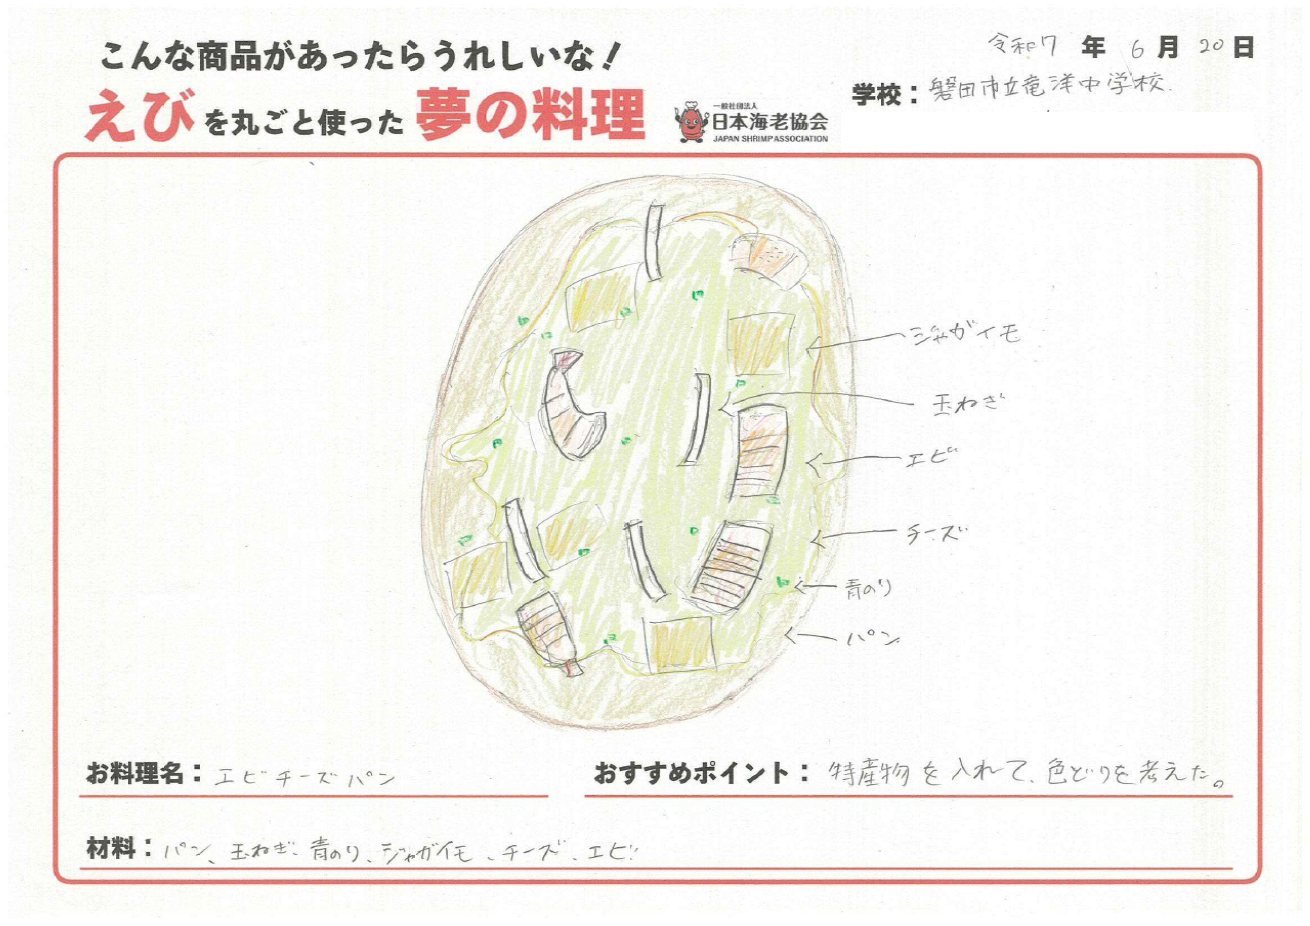 こんな商品があったらうれしいな！
えびを丸ごと使った夢の料理
一般社団法人
日本海老協会
JAPAN SHRIMP ASSOCIATION
令和7年6月20日
学校：磐田市立竜洋中学校
ジャガイモ
玉ねぎ
エビ
チーズ
青のり
パン
お料理名：エビチーズパン
おすすめポイント：特産物を入れて、色どりを考えた。
材料：パン、玉ねぎ、青のり、ジャガイモ、チーズ、エビ